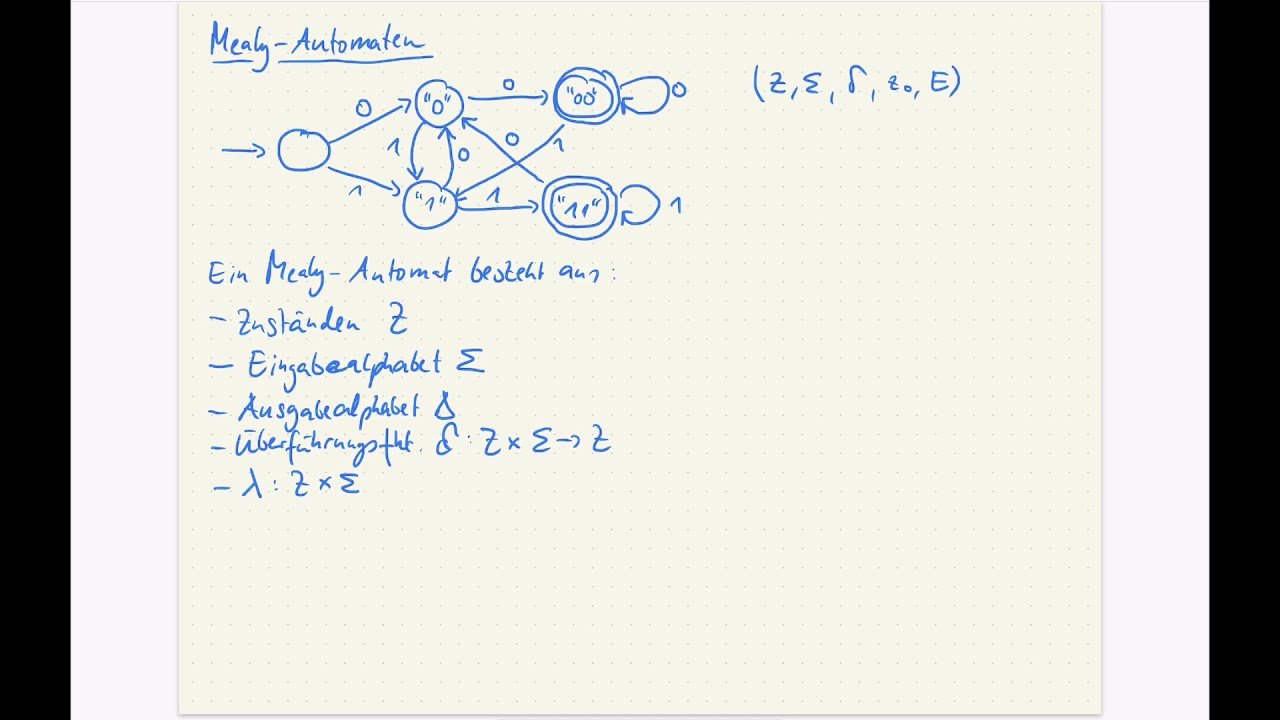 Mealy-Automaten
(Z, Σ, δ, z₀, E)
0 "0" 0 "00" 0
1 0 0 1
1 "1" 1 "11" 1
Ein Mealy-Automat besteht aus:
- Zuständen Z
- Eingabealphabet Σ
- Ausgabealphabet Δ
- Überführungsfkt. δ: Z × Σ → Z
- λ: Z × Σ